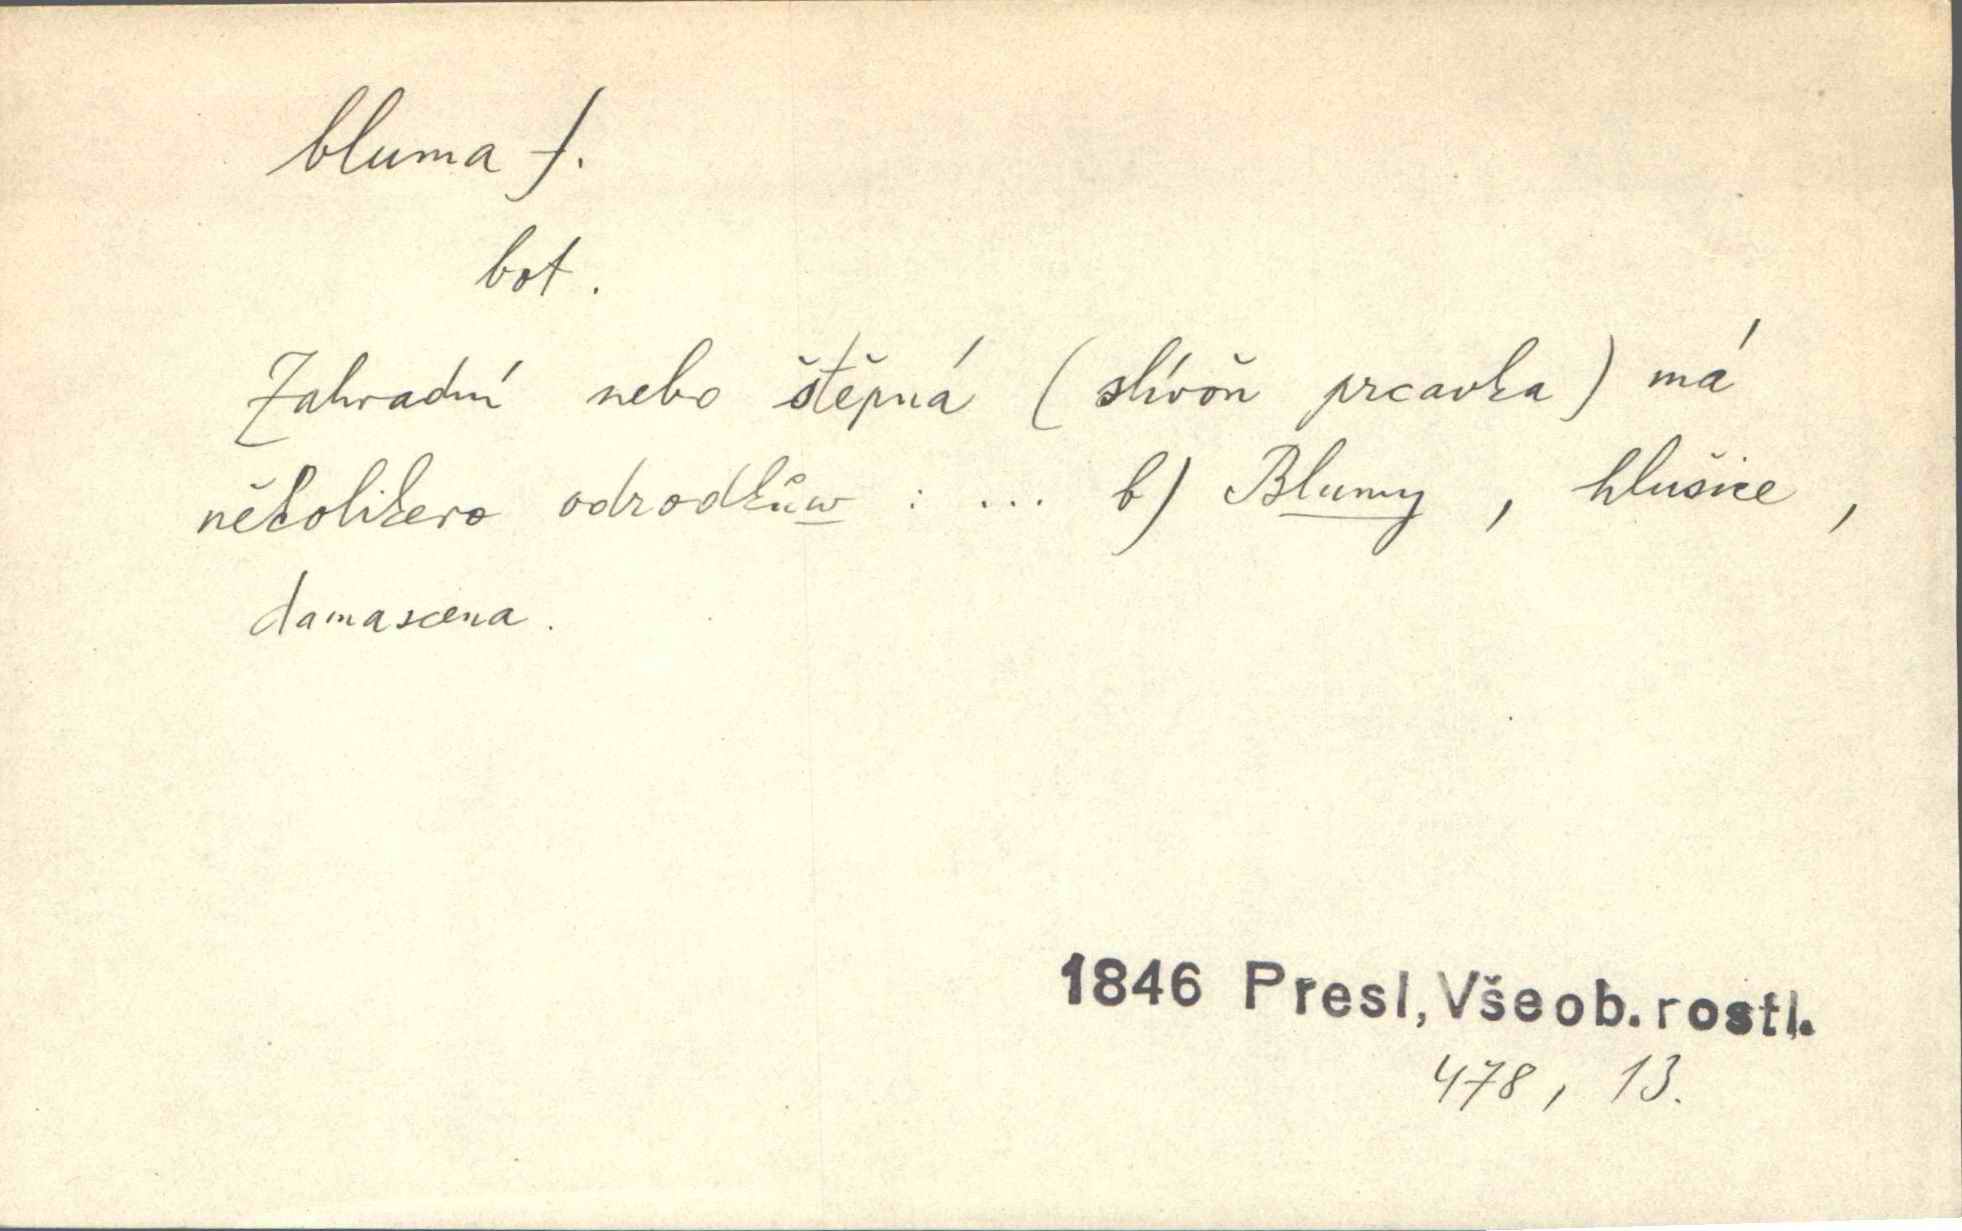 bluma f.
bot.
Zahradní nebo štěpná (slívoň prcavka) má
několikero odrodkůw : ... b) Blumy, hlušice,
damascena.
1846 Presl, Všeob. rostl.
478, 13.